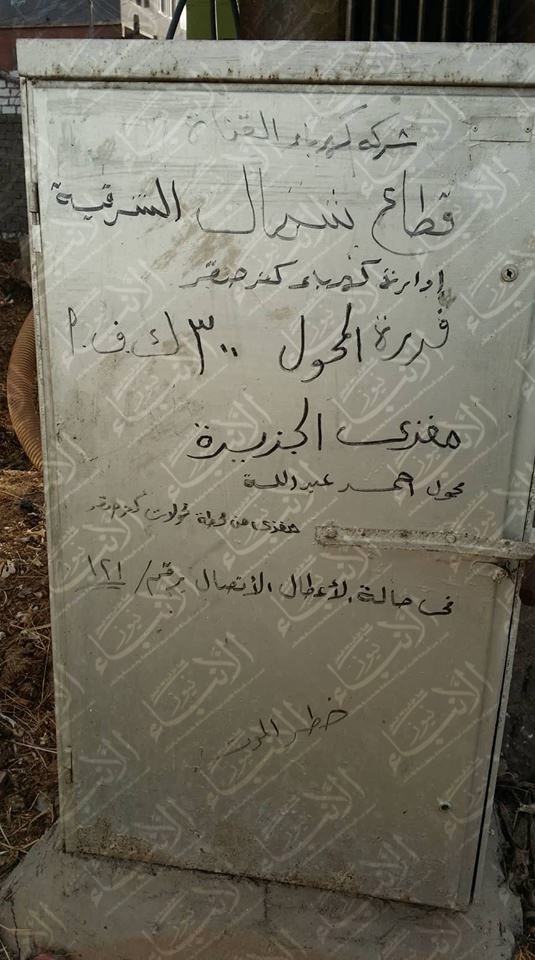 شركة كهرباء القناة
قطاع شمال الشرقية
إدارة كهرباء كفر صقر
قدرة المحول ٣٠٠ ك.ف.أ
مغذى الجزيرة
محول احمد عبد اللة
مغذى من محطة محولات كفر صقر
فى حالة الأعطال الأتصال برقم/ ١٢١
خطر الموت
الأنباء نيوز